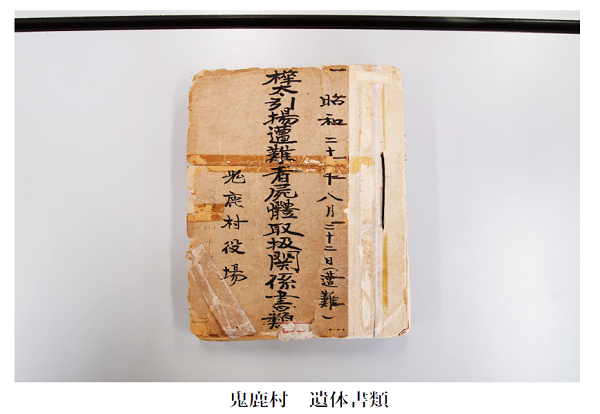 昭和二十年八月二十二日(遭難)
樺太引揚遭難者屍體取扱関係書類
鬼鹿村役場
鬼鹿村　遺体書類